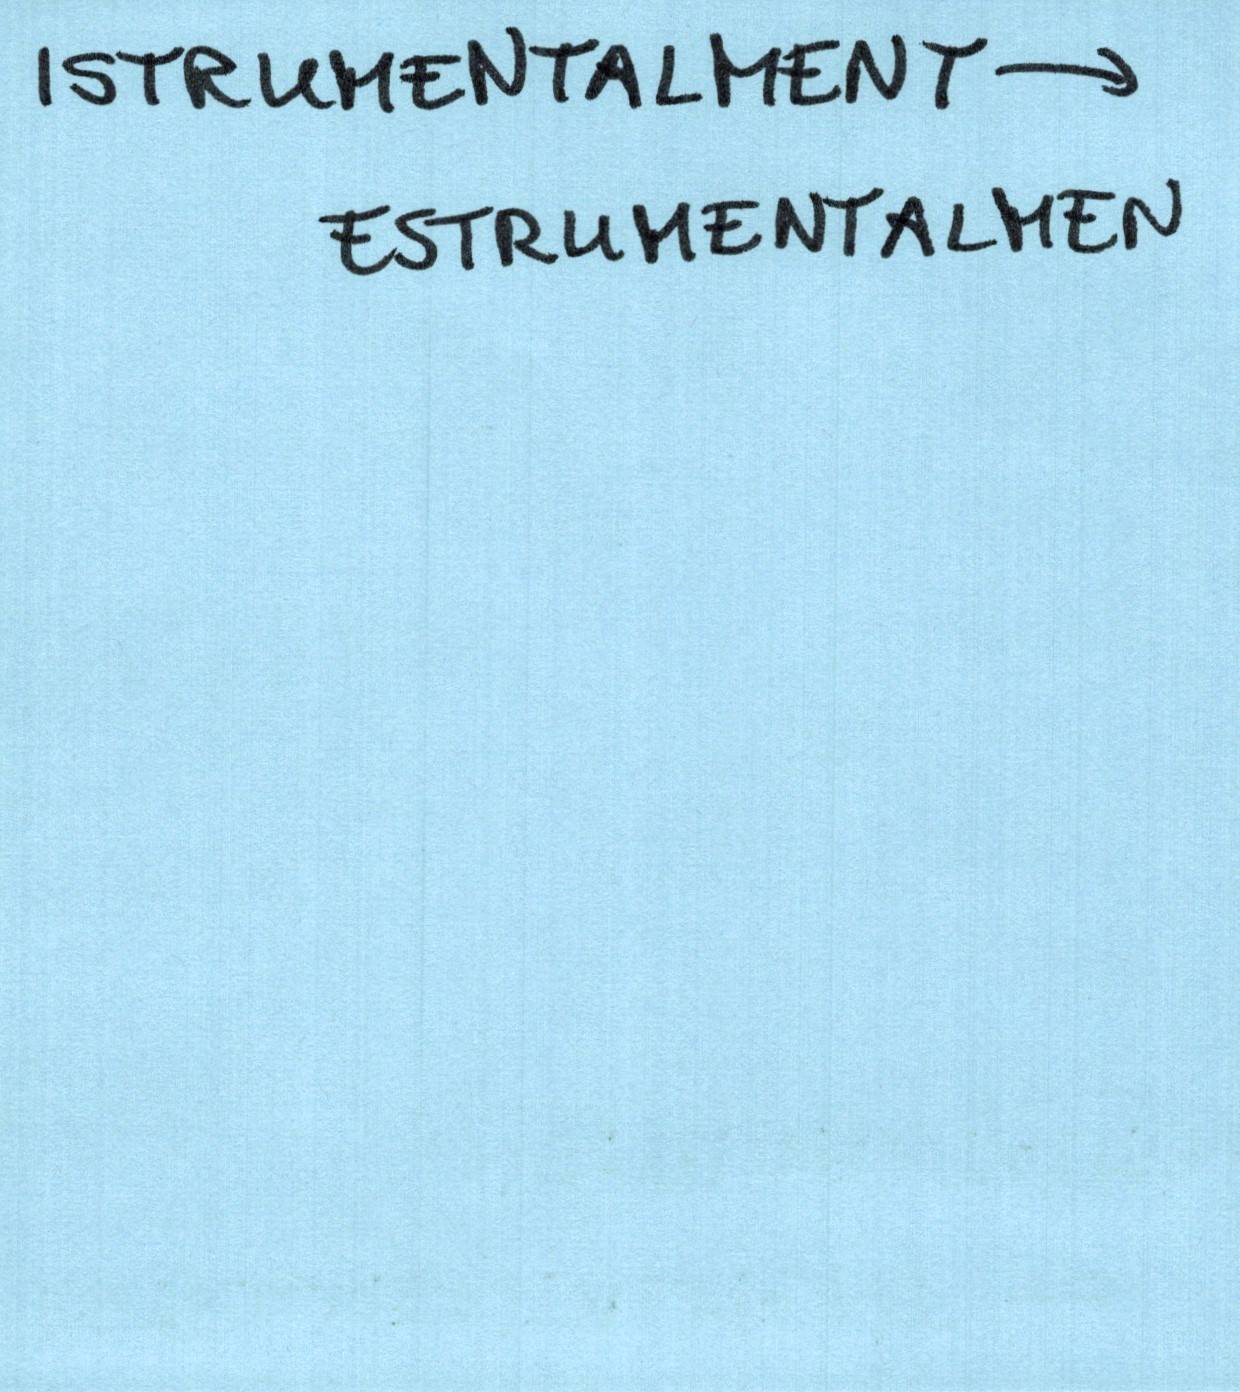 ISTRUMENTALMENT →
ESTRUMENTALMEN